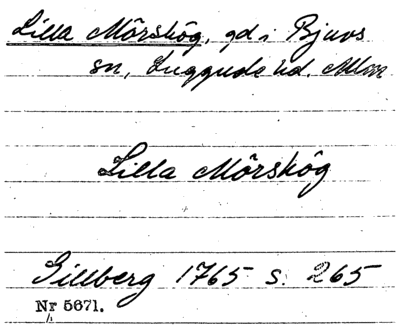 Lilla Mörskög, gd i Bjuvs
sn, Luggude hd. Mlm
Lilla Mörskög
Gillberg 1765 s. 265
Nr 5671.